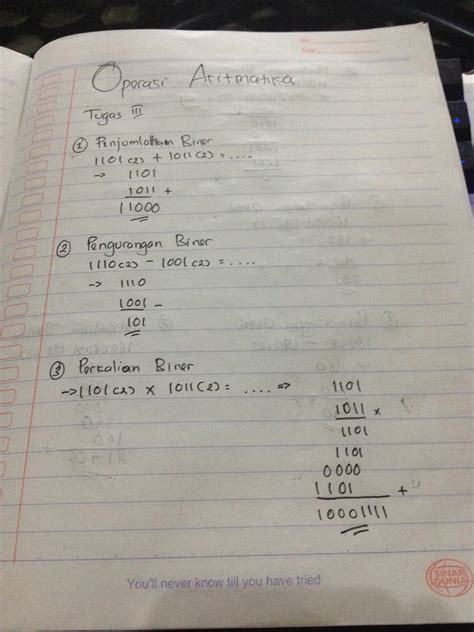 Operasi Aritmatika
Tugas III
① Penjumlahan Biner
1101(2) + 1011(2) = ....
-> 1101
1011 +
11000
② Pengurangan Biner
1110(2) - 1001(2) = ....
-> 1110
1001 -
101
③ Perkalian Biner
-> 1101(2) x 1011(2) = .... =>
1101
1011 x
1101
1101
0000
1101 +
10001111
You'll never know till you have tried
SINAR DUNIA